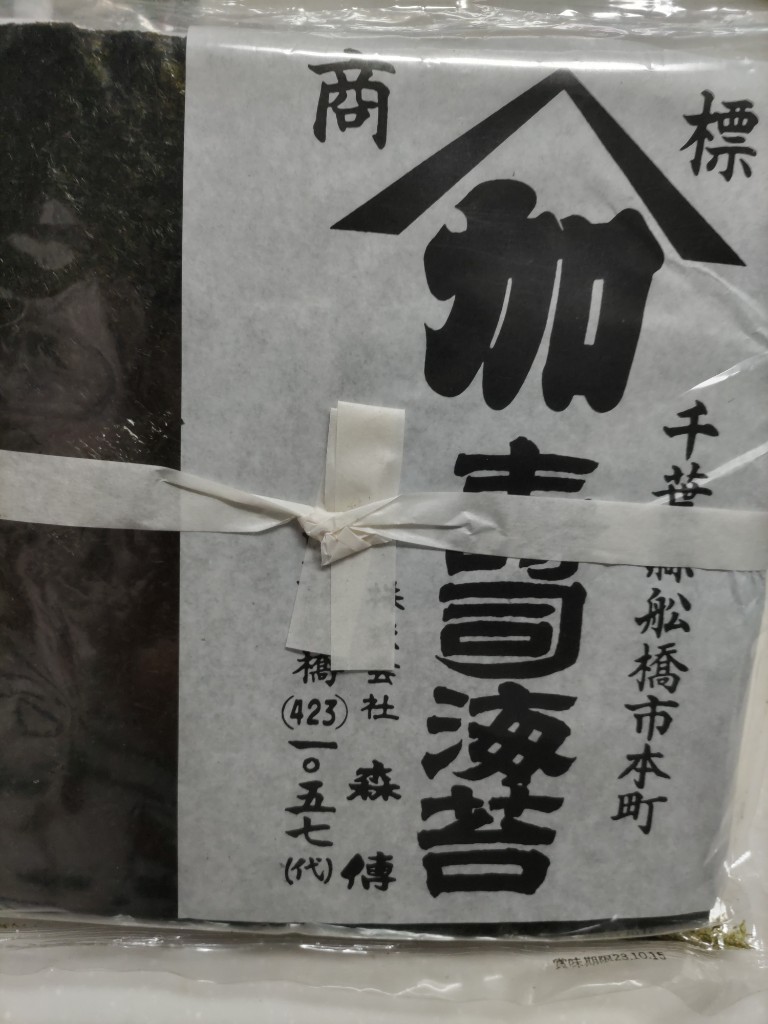 商標
加
千葉縣船橋市本町
壽司海苔
株式会社 森傳
橋(423)一〇五七(代)
賞味期限23.10.15